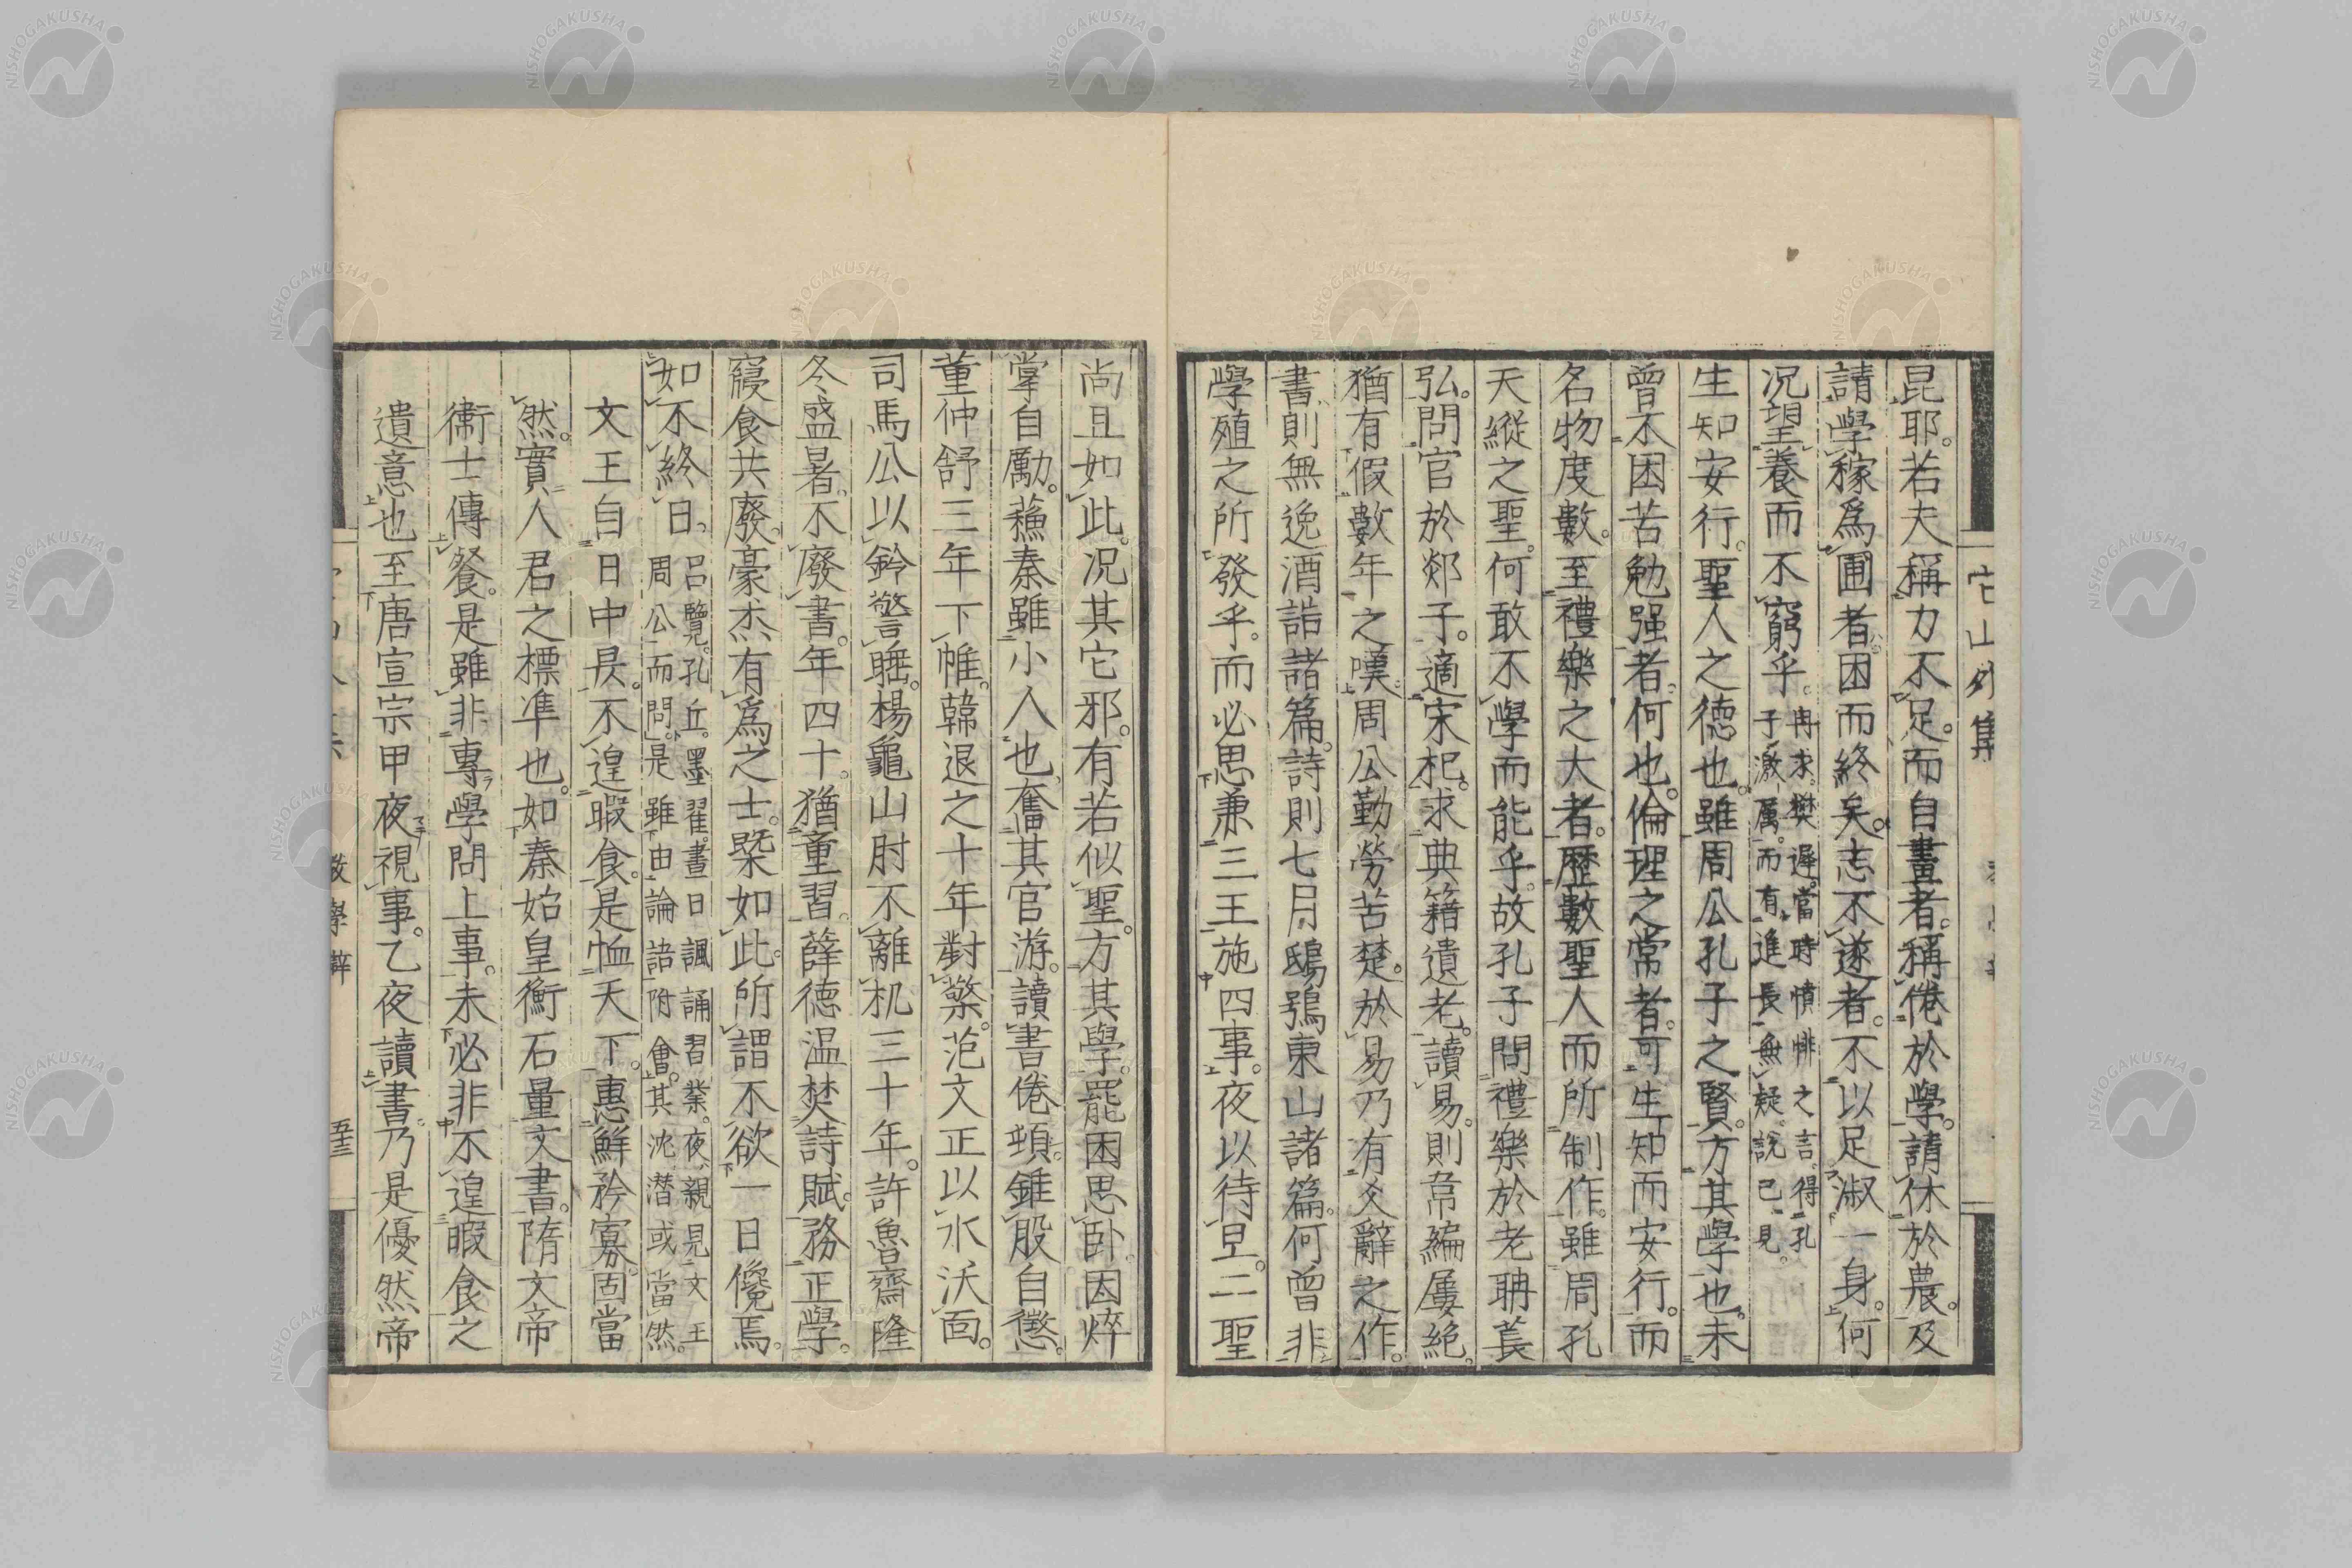 昆耶。若夫稱力不足。而自畫者。稱倦於學。請休於農。及
請學稼爲圃者。困而終矣。志不遂者。不以足淑一身。何
況望養而不窮乎。冉求。樊遲。當時憤悱之言。得孔
子激厲。而有進長無疑。說已見。
生知安行。聖人之德也。雖周公孔子之賢。方其學也。未
曾不困苦勉强者。何也。倫理之常者。可生知而安行。而
名物度數。至禮樂之大者。歷數聖人而所制作。雖周孔
天縱之聖。何敢不學而能乎。故孔子問禮樂於老聃萇
弘。問官於郯子。適宋杞。求典籍遺老。讀易。則韋編屢絕。
猶有假數年之嘆。周公勤勞苦楚。於易乃有爻辭之作。
書則無逸酒誥諸篇。詩則七月鴟鴞東山諸篇。何曾非
學殖之所發乎。而必思兼三王施四事。夜以待旦。二聖
尚且如此。況其它邪。有若似聖。方其學。罷困思臥。因焠
掌自勵。蘓秦雖小人也。奮其官游。讀書倦頓。錐股自懲。
董仲舒三年下帷。韓退之十年對檠。范文正以水沃面。
司馬公以鈴警睡。楊龜山肘不離机三十年。許魯齋隆
冬盛暑。不廢書。年四十。猶童習。薛德温焚詩賦。務正學。
寢食共廢。豪杰有爲之士。槩如此。所謂不欲一日儳焉。
如不終日。呂覽。孔丘。墨翟。晝日諷誦習業。夜親見文王
周公而問。是雖由論語附會。其沈潛或當然。
文王自日中昃。不遑暇食。是恤天下。惠鮮矜寡。固當
然。實人君之標準也。如秦始皇衡石量文書。隋文帝
衛士傳餐。是雖非專學問上事。未必非不遑暇食之
遺意也至唐宣宗甲夜視事。乙夜讀書。乃是優然帝
它山外集
教學辭
五三